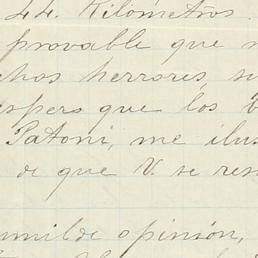 44. Kilómetros.
provable que
chos herrores,
espero que los
Patoni, me ilus
de que V. se res
umilde opinsón,